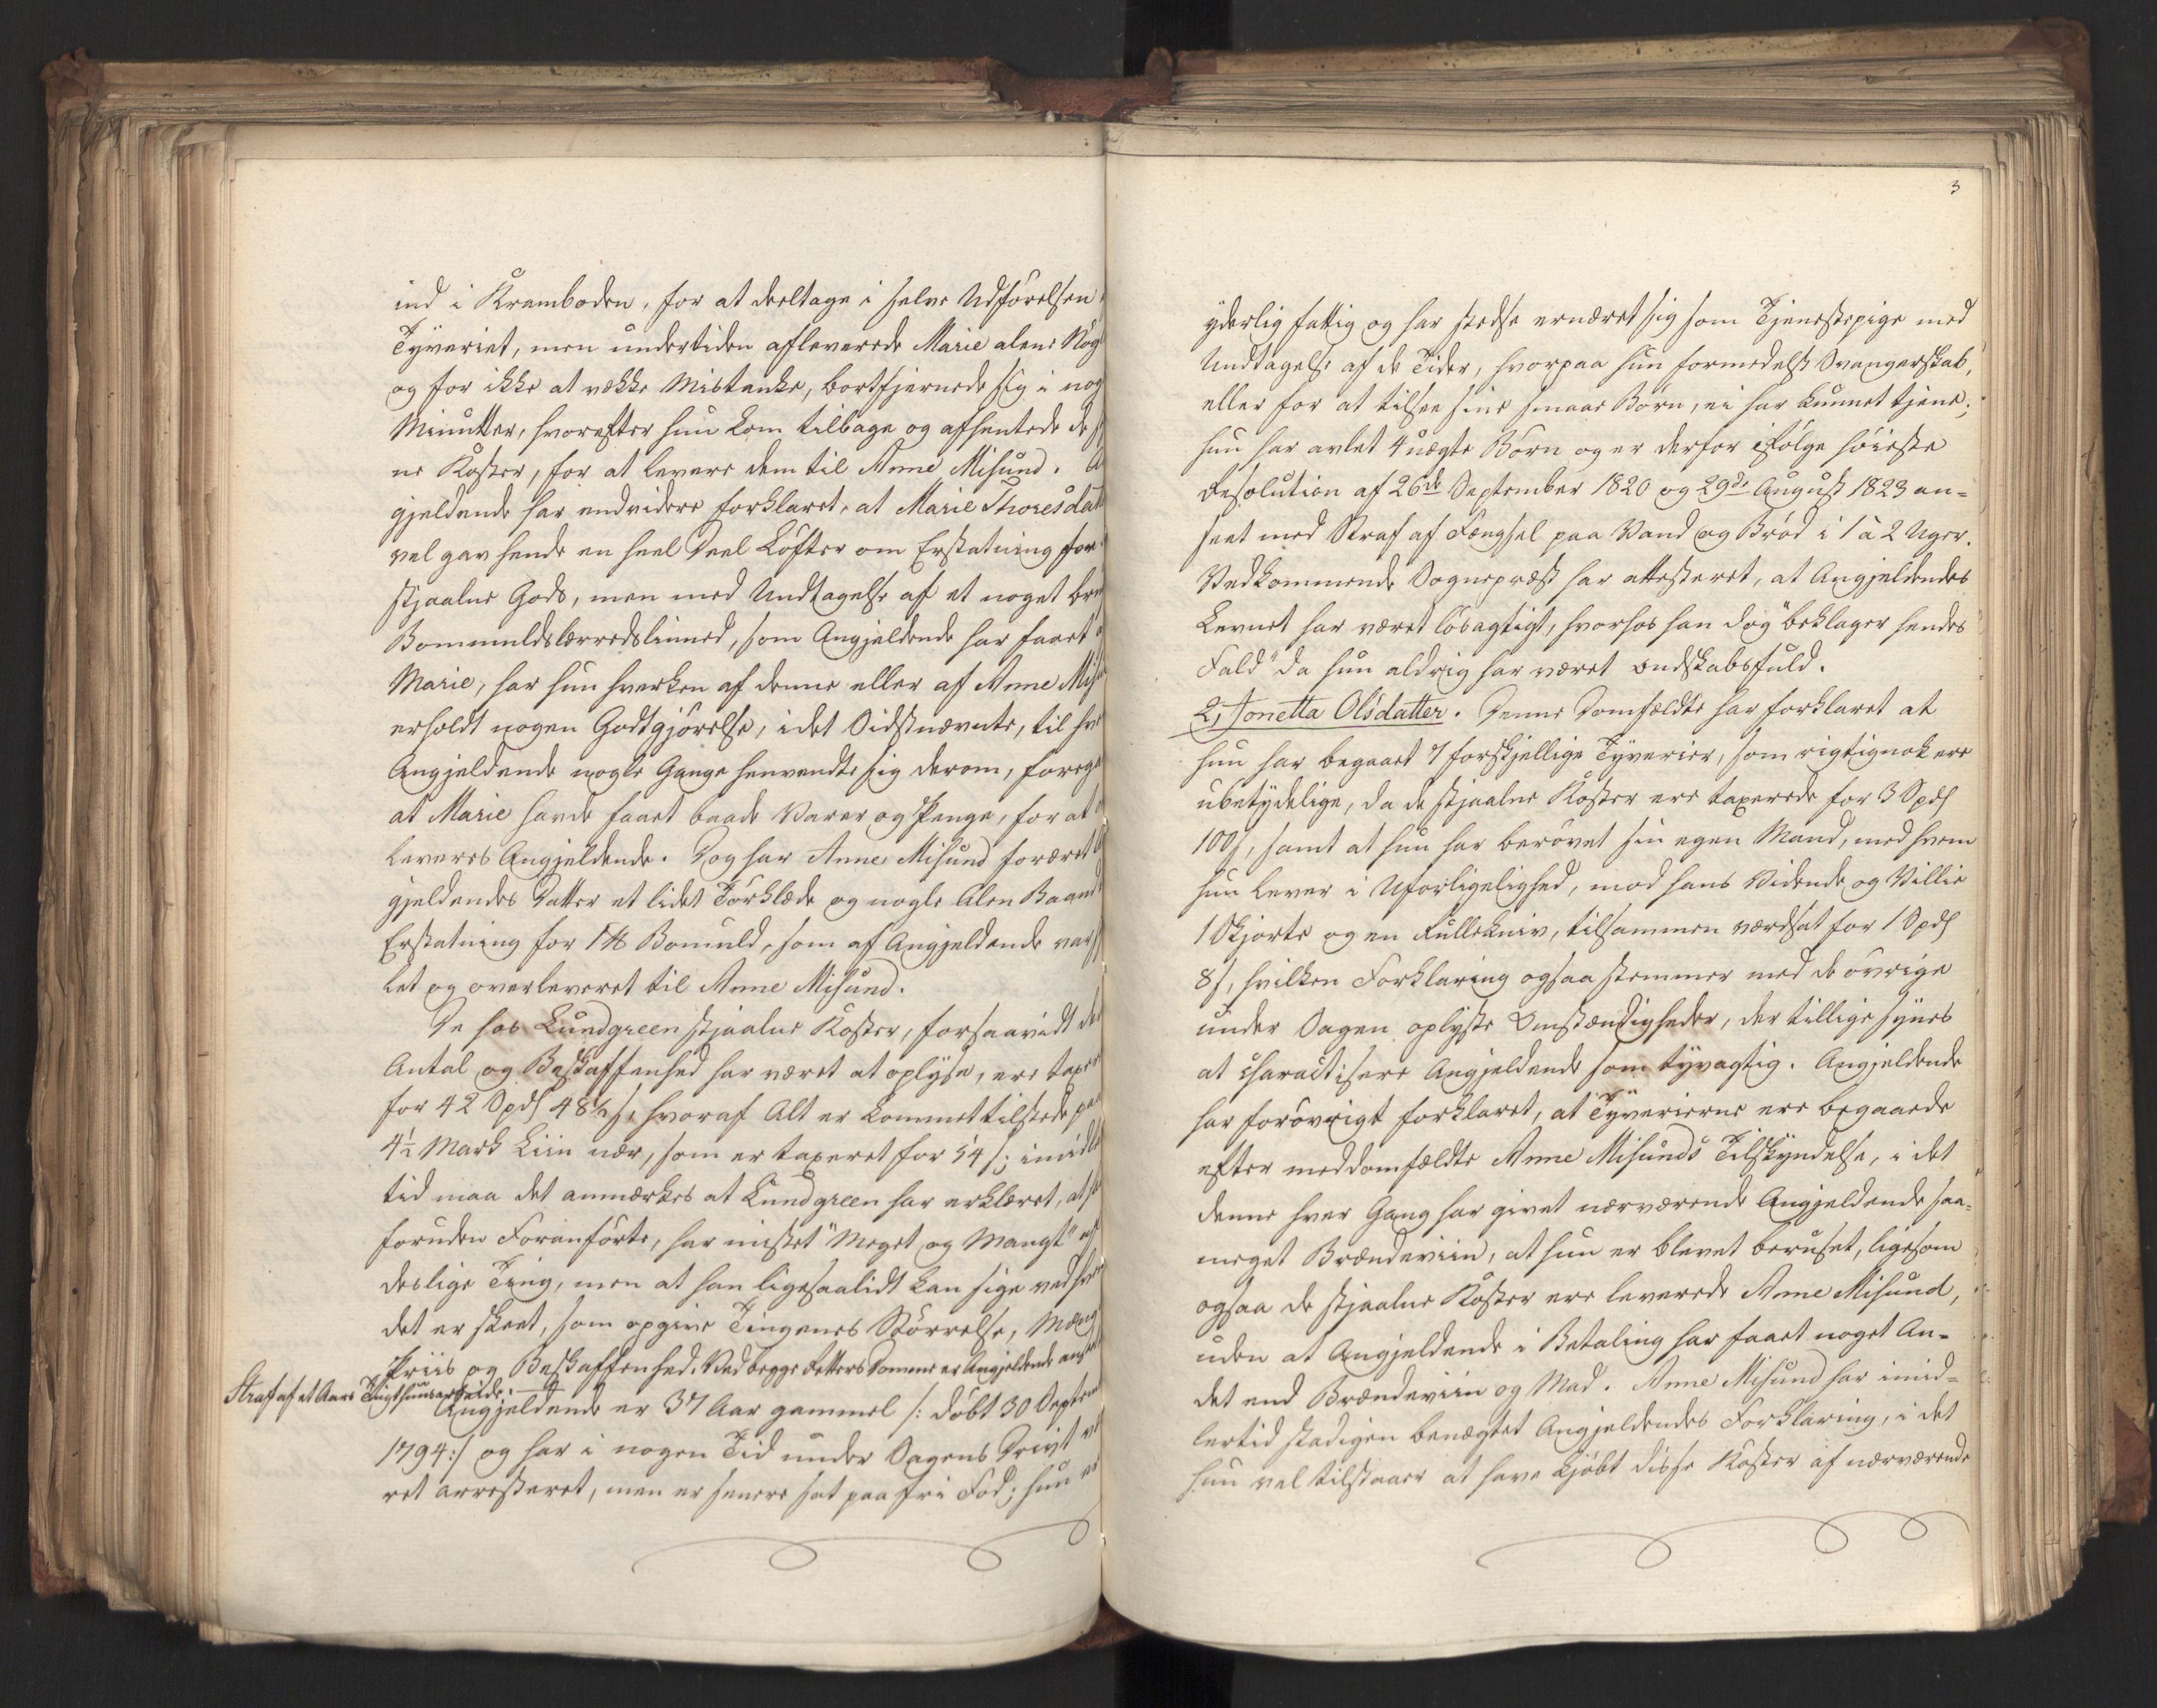 ind i Kramboden, for at deeltage i selve Udførelsen
Tyveriet, men undertiden afleverede Marie alene Nøg
og for ikke at vække Mistanke, bortfjernede sig i nog
Minutter, hvorefter hun kom tilbage og afhentede de
ne Koster, for at levere dem til Anne Misund. A
gjeldende har endvidere forklaret, at Marie Thoresdat
vel gav hende en heel Deel Løfter om Erstatning for
stjaalne Gods, men med Undtagelse af et noget
Bommuldslærredslinned, som Angjeldende har faaet
Marie, har hun hverken af denne eller af Anne Mis
erholdt nogen Godtgjørelse, idet Sidstnævnte, til hv
Angjeldende nogle Gange henvendte sig derom, foreg
at Marie havde faaet baade Varer og Penge, for at
leveres Angjeldende. Dog har Anne Misund foræret
gjeldendes Datter et lidet Tørklæde og nogle Alen Baand
Erstatning for 1 ℔ Bomuld, som af Angjeldende var
let og overleveret til Anne Misund.
De hos Lundgreen stjaalne Koster, forsaavidt de
Antal og Beskaffenhed har været at oplyse, ere taxer
for 42 Spd 48½ s, hvoraf Alt er kommet tilstede paa
4½ Mark Liin nær, som er taxeret for 54 s; imidler
tid maa det anmærkes at Lundgreen har erklæret, at
foruden Foranførte, har mistet "Meget og Mangt" af
deslige Ting, men at han ligesaalidt kan sige ved
det er skeet, som opgive Tingenes Størrelse, Mæng
Priis og Beskaffenhed. Ved begge Retters Domme er Angjeldende anseet
Straf af et Aars Tugthuusarbeide.
Angjeldende er 37 Aar gammel /: døbt 30 Septem
1794:/ og har i nogen Tid under Sagens Drivt
ret arresteret, men er senere sat paa fri Fod; hun er
3
yderlig fattig og har stedse ernæret sig som Tjenestepige med
Undtagelse af de Tider, hvorpaa hun formedelst Svangerskab,
eller for at tilsee sine smaae Børn, ei har kunnet tjene;
hun har avlet 4 uægte Børn og er derfor ifølge høieste
Resolution af 26de September 1820 og 29de August 1823 an-
seet med Straf af Fængsel paa Vand og Brød i 1 à 2 Uger.
Vedkommende Sognepræst har attesteret, at Angjeldendes
Levnet har været løsagtigt, hvorhos han dog "beklager hendes
Fald" da hun aldrig har været ondskabsfuld.
2, Jonetta Olsdatter. Denne Domfældte har forklaret at
hun har begaaet 7 forskjellige Tyverier, som rigtignok ere
ubetydelige, da de stjaalne Koster ere taxerede for 3 Spd
100 s, samt at hun har berøvet sin egen Mand, med hvem
hun lever i Uforligelighed, mod hans Vidende og Villie
1 Skjorte og en Rullekniv, tilsammen værdsat for 1 Spd
8 s, hvilken Forklaring ogsaa stemmer med de øvrige
under Sagen oplyste Omstændigheder, der tillige synes
at charactisere Angjeldende som tyvagtig. Angjeldende
har forøvrigt forklaret, at Tyverierne ere begaaede
efter meddomfældte Anne Misunds Tilskyndelse, i det
denne hver Gang har givet nærværende Angjeldende saa-
meget Brændeviin, at hun er blevet beruset, ligesom
ogsaa de stjaalne Koster ere leverede Anne Misund,
uden at Angjeldende i Betaling har faaet noget An-
det end Brændeviin og Mad. Anne Misund har imid-
lertid stadigen benægtet Angjeldendes Forklaring, i det
hun vel tilstaaer at have kjøbt disse Koster af nærværende